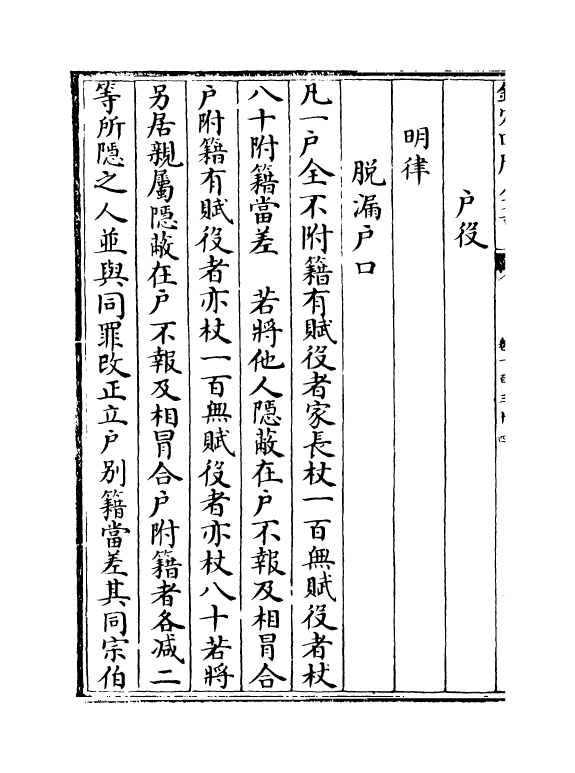 户役
明律
脱漏户口
凡一户全不附籍有賦役者家長杖一百無賦役者杖
八十附籍當差　若將他人隱蔽在户不報及相冐合
户附籍有賦役者亦杖一百無賦役者亦杖八十若將
另居親屬隱蔽在户不報及相冐合户附籍者各减二
等所隱之人並與同罪改正立户别籍當差其同宗伯